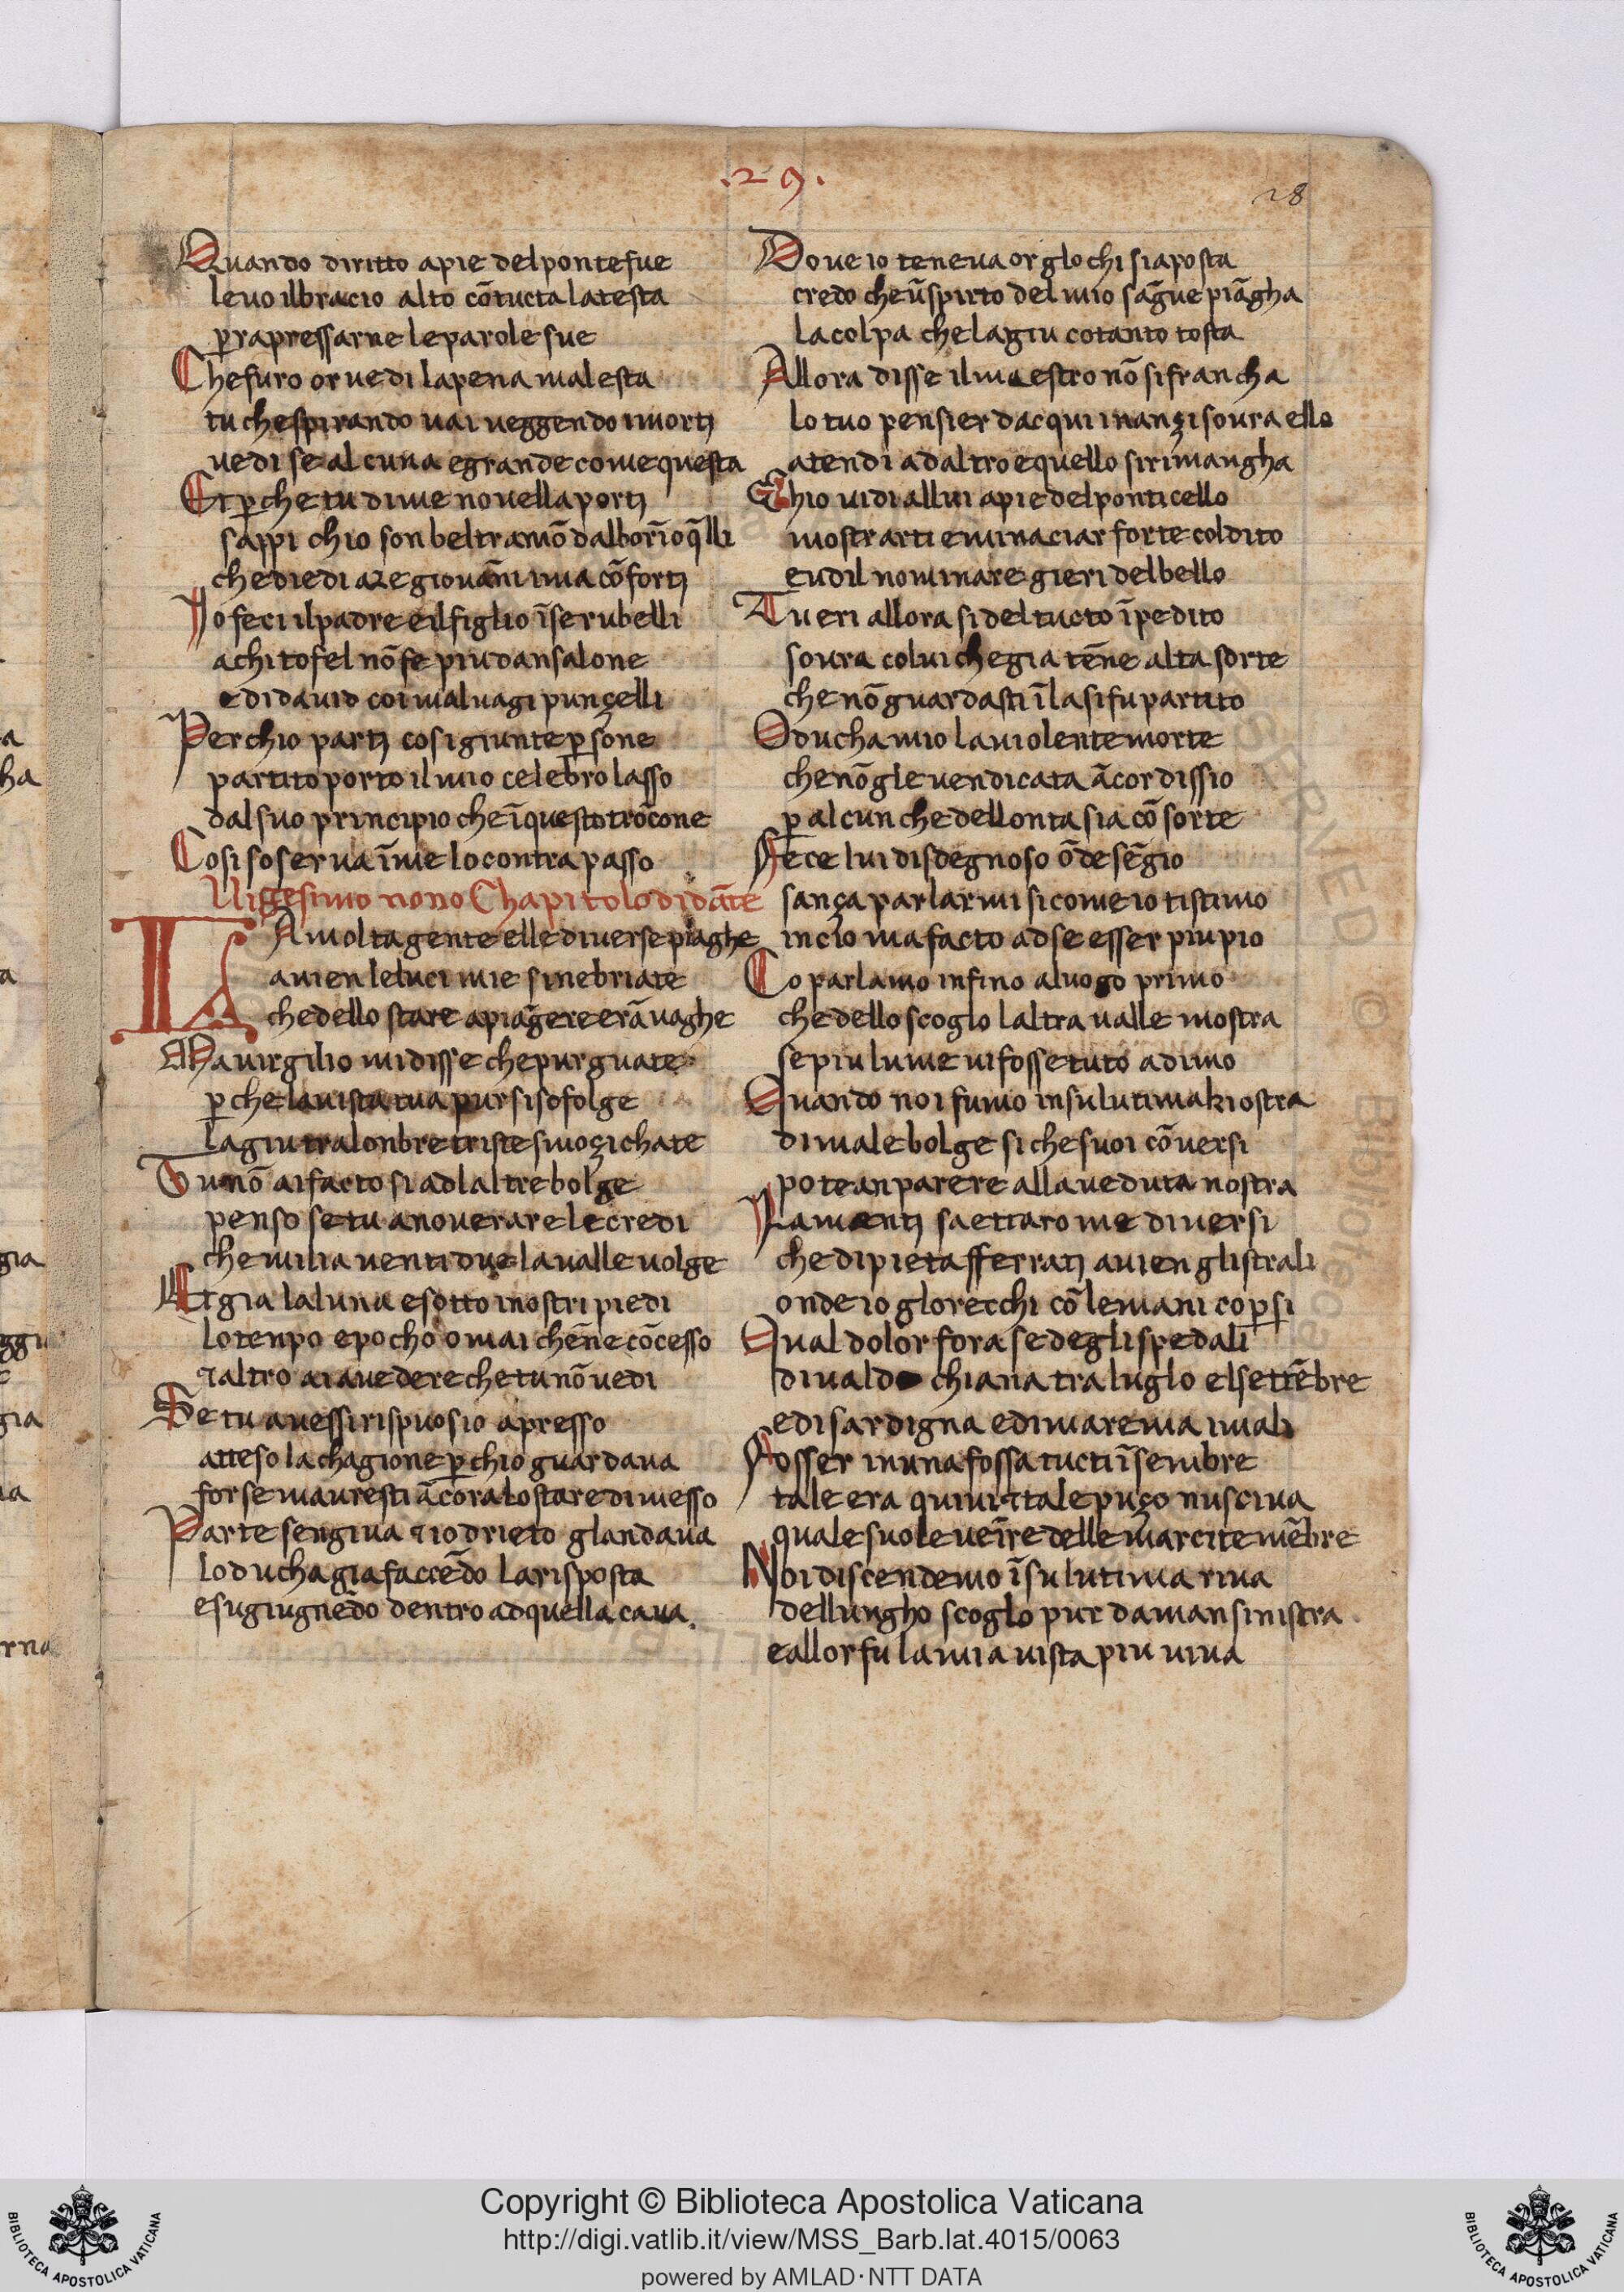 .29.
28
Quando diritto apie delpontefue
levo ilbracio alto cō tucta latesta
ꝑrapressarne leparole sue
Chefuro or vedi lapena malesta
tu chespirando vai veggendo imorti
vedi se alcuna egrande come questa
Et ꝑche tu dime novella porti
sappi chio son beltramō dalborīo q̄lli
che diedi a re giovāni ima cōforti
Io feci ilpadre eilfiglio īse rubelli
achitofel nō fe piu dansalone
e di david coi malvagi punçelli
Perchio parti cosi giunte ꝑsone
partito porto il mio celebro lasso
dal suo principio che ī questo trōcone
Cosi soserva īme lo contrapasso
Uigesimo nono Chapitolo di dāte
LA molta gente elle diverse piaghe
avien le luci mie sinebriate
che dello stare apiāgere erā vaghe
Ma virgilio mi disse che pur guate
ꝑche la vista tua pur si sofolge
lagiu tralonbre triste smoçichate
Tu nō ai facto si ad laltre bolge
penso se tu anoverare le credi
che milia ventidue la valle volge
Et gia la luna e sotto i nostri piedi
lo tenpo e pocho omai chēne cōcesso
⁊ altro ai avedere che tu nō vedi
Se tu avessi rispuosio apresso
atteso la chagione ꝑchio guardava
forse mavresti ācora lo stare dimesso
Parte sengiva ⁊ io drieto glandava
lo ducha gia faccēdo la risposta
e sugiugnēdo dentro ad quella cava.
Dove io teneva or glochi si aposta
credo che ū spirto del mio sāgue piāgha
la colpa che lagiu cotanto tosta
Allora disse il maestro nō si francha
lo tuo pensier dacqui inançi sovra ello
atendi ad altro e quello si rimangha
Chio vidi allui apie del ponticello
mostrarti e minaciar forte col dito
e udil nominare gieri del bello
Tu eri allora si del tucto īpedito
sovra colui che gia tēne alta forte
che nō guardasti ī la si fu partito
O ducha mio la violente morte
che nō gle vendicata ācor dissio
ꝑ alcun che dellonta sia cō sorte
Fece lui disdegnoso ōde sēgio
sança parlarmi si come io stimo
in cio ma facto ad se esser piu pio
Co parlamo infino aluogo primo
che dello scoglo laltra valle mostra
se piu lume vi fosse tuto ad imo
Quando noi fumo in su lutima kiostra
di malebolge si che suoi cōversi
potean parere alla veduta nostra
Lamenti saettaro me diversi
che di pieta fferrati avien gli strali
onde io glorecchi cō le mani coꝑsi
Qual dolor fora se degli spedali
di valdo chiana tra luglo el settēbre
e di sardigna e di marema i mali
Fosser in una fossa tucti īsembre
tale era quivi ⁊ tale puço nusciva
quale suole venīre delle marcite mēbre
Noi discendemo ī su lutima riva
del lungho scoglo pur da man sinistra
e allor fu la mia vista piu viva
Copyright © Biblioteca Apostolica Vaticana
http://digi.vatlib.it/view/MSS_Barb.lat.4015/0063
powered by AMLAD·NTT DATA
BIBLIOTECA APOSTOLICA VATICANA
BIBLIOTECA APOSTOLICA VATICANA